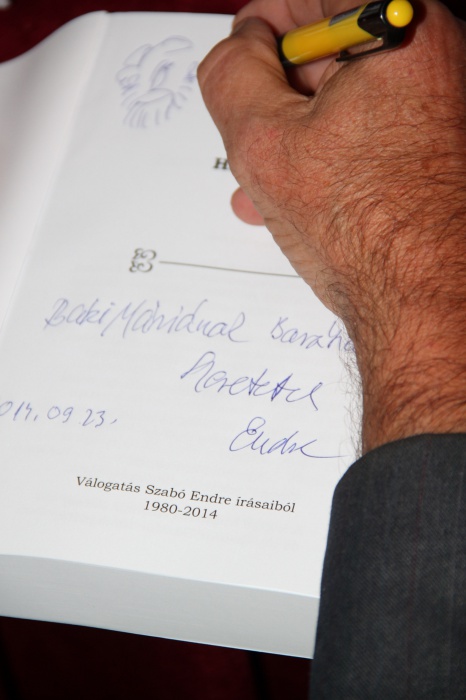 H
Baki Máriának Bará
Szeretettel
2014.09.23.
Endre
Válogatás Szabó Endre írásaiból
1980-2014